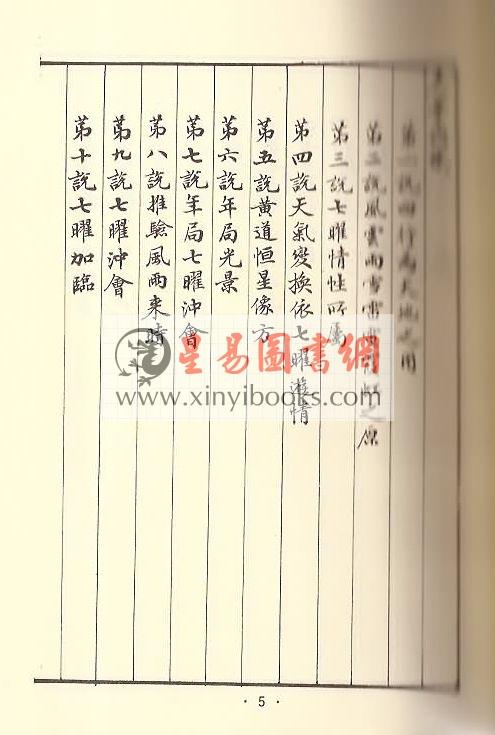 第一說四行為天地之用
第二說風雲雨雪雷電虹之原
第三說七曜情性所屬
第四說天氣變換依七曜漵情
第五說黃道恒星像方
第六說年局光景
第七說年局七曜沖會
第八說推驗風雨来晴
第九說七曜沖會
第十說七曜加臨
星易圖書網
www.xinyibooks.com
· 5 ·